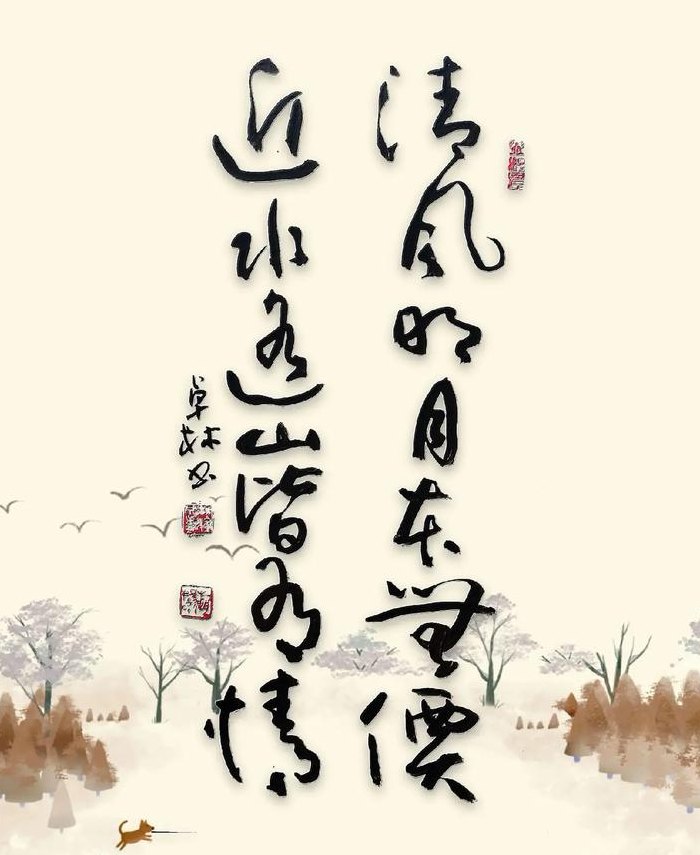 清风明月本無價
近水遠山皆有情
卓林书